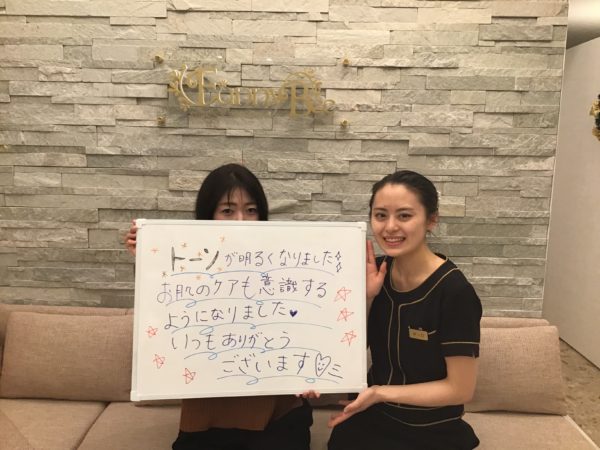 トーンが明るくなりました
お肌のケアも意識する
ようになりました♥
いつもありがとう
ございます♡